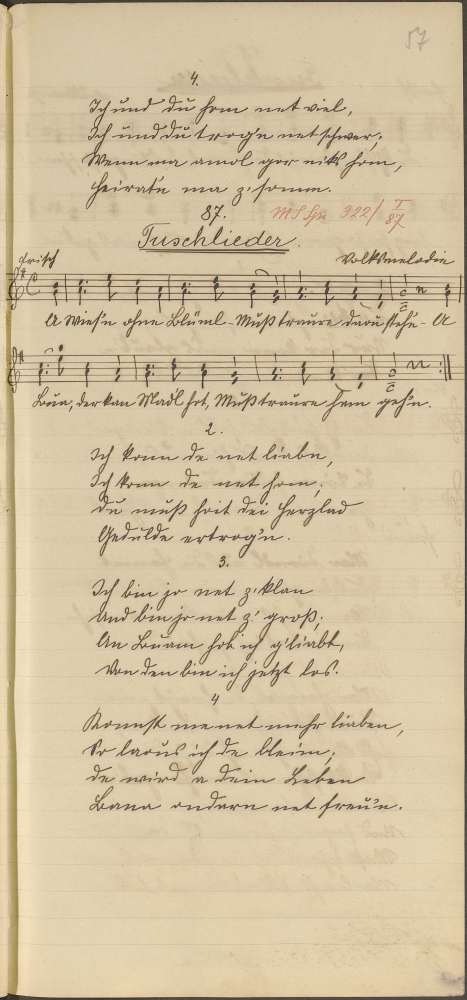 57
4.
Ich und du hom net viel,
Ich und du trog'n net schwer;
Wenn ma amol gor niks hom,
Heirat'n ma z'somm.
87. 922/ I 87
Tuschlieder.
Frisch Volksmelodie
A Wies'n ohne Blüml - Muß traure daoustehn - A
Bua, der kan Madl hot, Muß traure ham geh'n.
2.
Ich konn de net liabn,
Ich konn de net hom;
Du mußt hoit dei Herzlad
Gedulde ertrog'n.
3.
Ich bin jo net z'klan
Und bin jo net z' groß;
An Buam hob ich g'liabt,
Von den bin ich jetzt los.
4
Konnst me net mehr lieben,
So laous ich de bleim;
de wird a dein Leben
Bana ondern net freu'n.